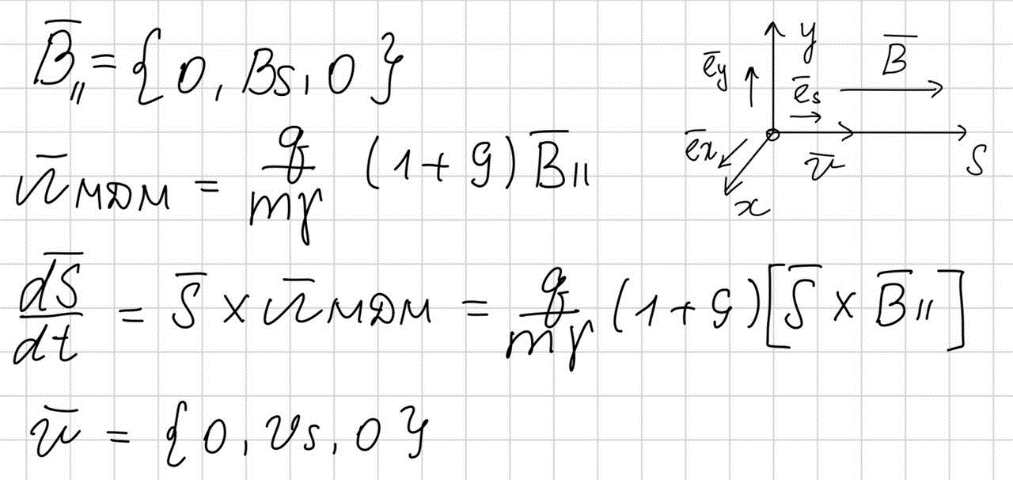 B̄∥ = {0, Bs, 0}
Ω̄мдм = q/mγ (1+G) B̄∥
dS̄/dt = S̄ × Ω̄мдм = q/mγ (1+G) [S̄ × B̄∥]
v̄ = {0, vs, 0}
y
B̄
ēy
ēs
ēx
v̄
S
x